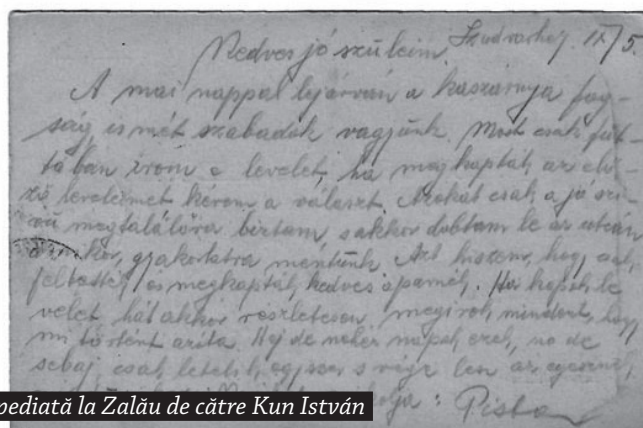 Szudvarhej. IX/5.
Kedves jó szüleim.
A mai nappal lejárván a kaszárnya fog-
ság ismét szabadok vagyunk. Most csak fut-
tában irom e levelet, ha megkapták az elő-
ző leveleimet kérem a választ. Azokat csak a jó szi-
vű megtalálóra biztam s akkor dobtam le az utcán
amikor gyakorlatra mentünk. Azt hiszem, hogy azok
feltették és megkapták kedves apámék. Ha kapok le
velet hát akkor részletesen megirok mindent, hogy
mi történt azóta. Hej de nehéz napok ezek, no de
sebaj, csak letelik, egyszer s vége lesz az egésznek,
Pista
pediată la Zalău de către Kun István